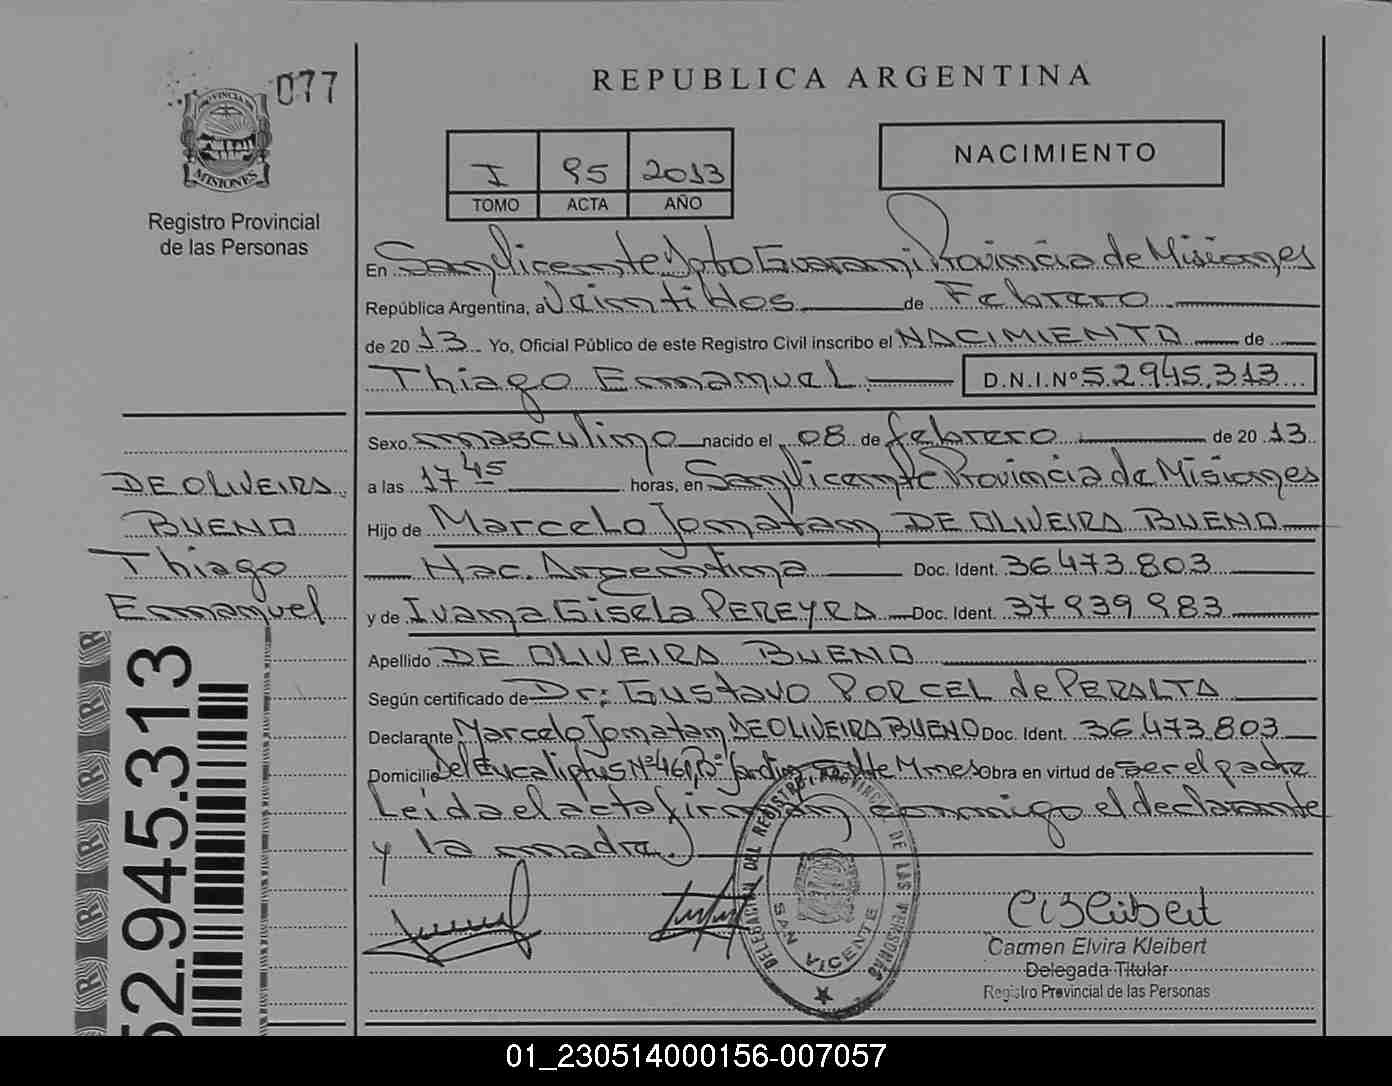 077
PROVINCIA DE
MISIONES
Registro Provincial
de las Personas
REPUBLICA ARGENTINA
I 95 2013
TOMO ACTA AÑO
NACIMIENTO
En San Vicente Dpto Guarani Provincia de Misiones
República Argentina, a Veinti dos de Febrero
de 20 13 Yo, Oficial Público de este Registro Civil inscribo el NACIMIENTO de
Thiago Emmanuel D.N.I.Nº 52.945.313
Sexo masculino nacido el 08 de febrero de 20 13
a las 17 45 horas, en San Vicente Provincia de Misiones
Hijo de Marcelo Jonatan DE OLIVEIRA BUENO
Nac. Argentina Doc. Ident. 36.473.803
y de Ivana Gisela PEREYRA Doc. Ident. 37.939.983
Apellido DE OLIVEIRA BUENO
Según certificado de Dr: Gustavo PORCEL de PERALTA
Declarante Marcelo Jonatan DE OLIVEIRA BUENO Doc. Ident. 36.473.803
Domicilio Del Eucaliptus Nº 461, Bº Jardin Mnes Obra en virtud de ser el padre
Leida el acta firman conmigo el declarante
y la madre.
DE OLIVEIRA
BUENO
Thiago
Emmanuel
52.945.313
R R R R R
DELEGACION DEL REGISTRO PROVINCIAL DE LAS PERSONAS
SAN VICENTE
C E Kleibert
Carmen Elvira Kleibert
Delegada Titular
Registro Provincial de las Personas
01_230514000156-007057